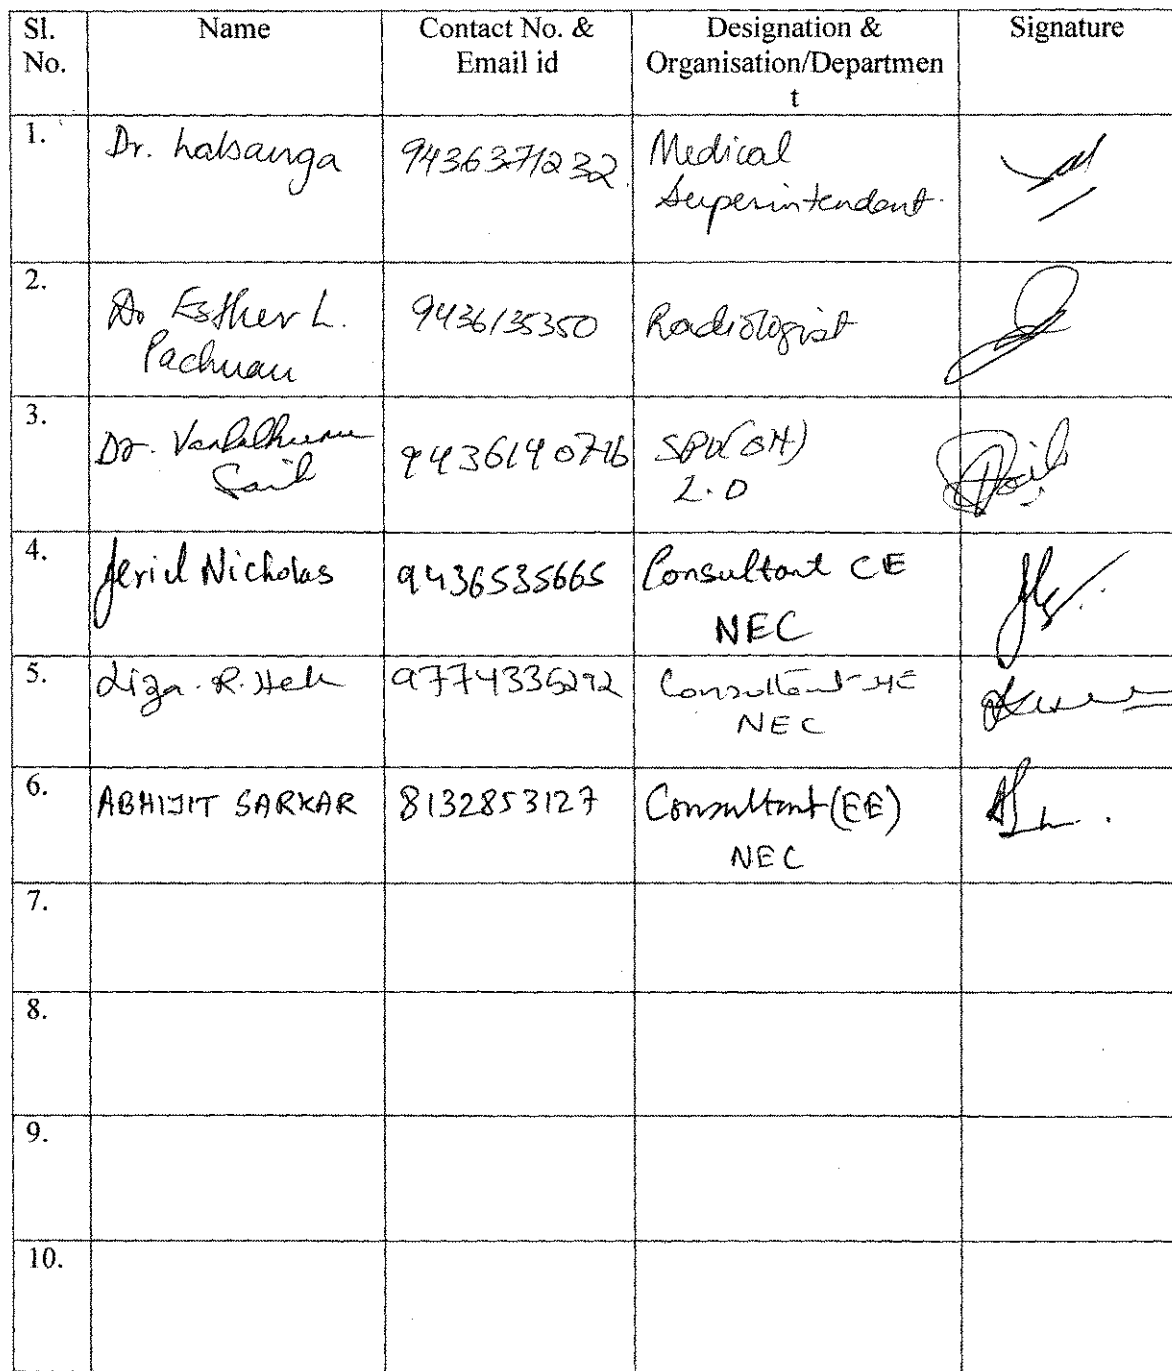 Sl. No. Name Contact No. & Email id Designation & Organisation/Departmen t Signature
1. Dr. Lalsanga 9436371232 Medical Superintendent.
2. Dr Esther L. Pachuau 9436135350 Radiologist
3. Dr. Sailo SPO(OH) 2.0
4. Jeril Nicholas 9436535665 Consultant CE NEC
5. Liza. R. Consultant NEC
6. ABHIJIT SARKAR 8132853127 Consultant (EE) NEC
7.
8.
9.
10.